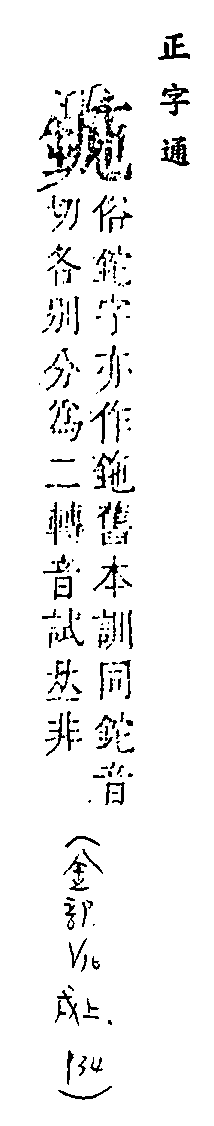 正字通
俗鉈字亦作鉇舊本訓同鉈音
切各別分為二轉音試𠀤非
(金部
1/16
戌上.
P34)